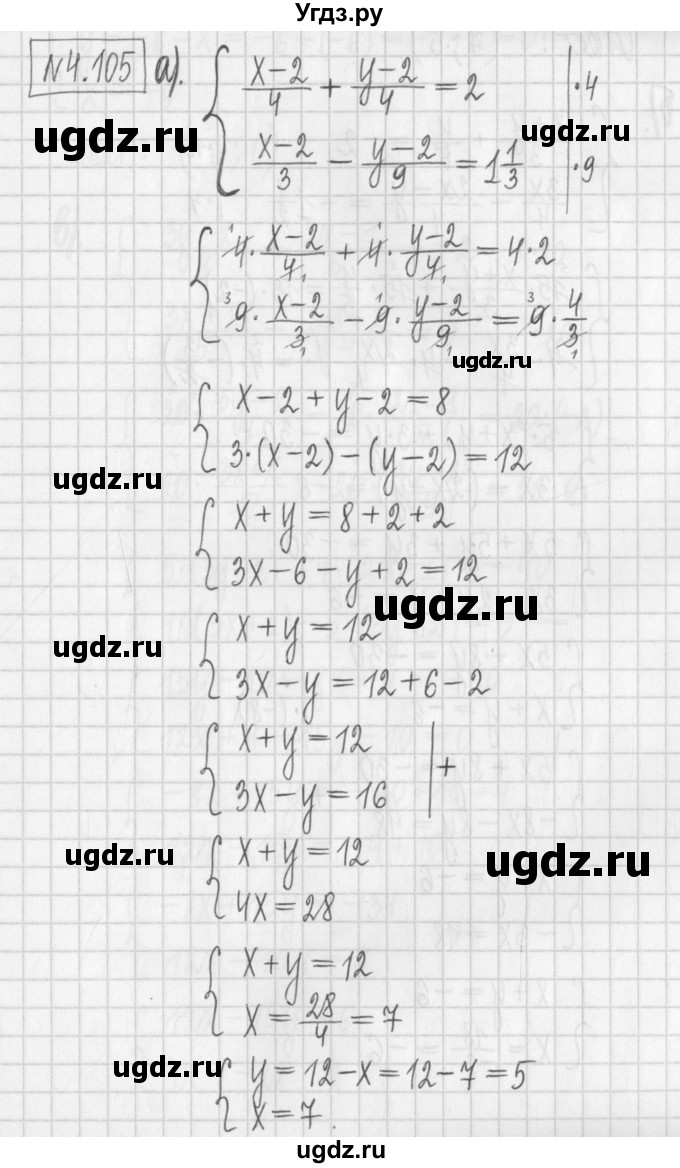 Угдз.ру
№4.105 а). { (x-2)/4 + (y-2)/4 = 2 | ·4
ugdz.ru ugdz.ru
(x-2)/3 - (y-2)/9 = 1 1/3 | ·9
{ 4· (x-2)/4 + 4· (y-2)/4 = 4·2
9· (x-2)/3 - 9· (y-2)/9 = 9· 4/3
ugdz.ru
{ x-2+y-2=8
3·(x-2)-(y-2)=12
ugdz.ru
{ x+y=8+2+2
3x-6-y+2=12
ugdz.ru
{ x+y=12
ugdz.ru
3x-y=12+6-2
{ x+y=12 | +
3x-y=16
{ x+y=12
ugdz.ru ugdz.ru
4x=28
{ x+y=12
x= 28/4 =7
ugdz.ru
{ y=12-x=12-7=5
x=7.
ugdz.ru